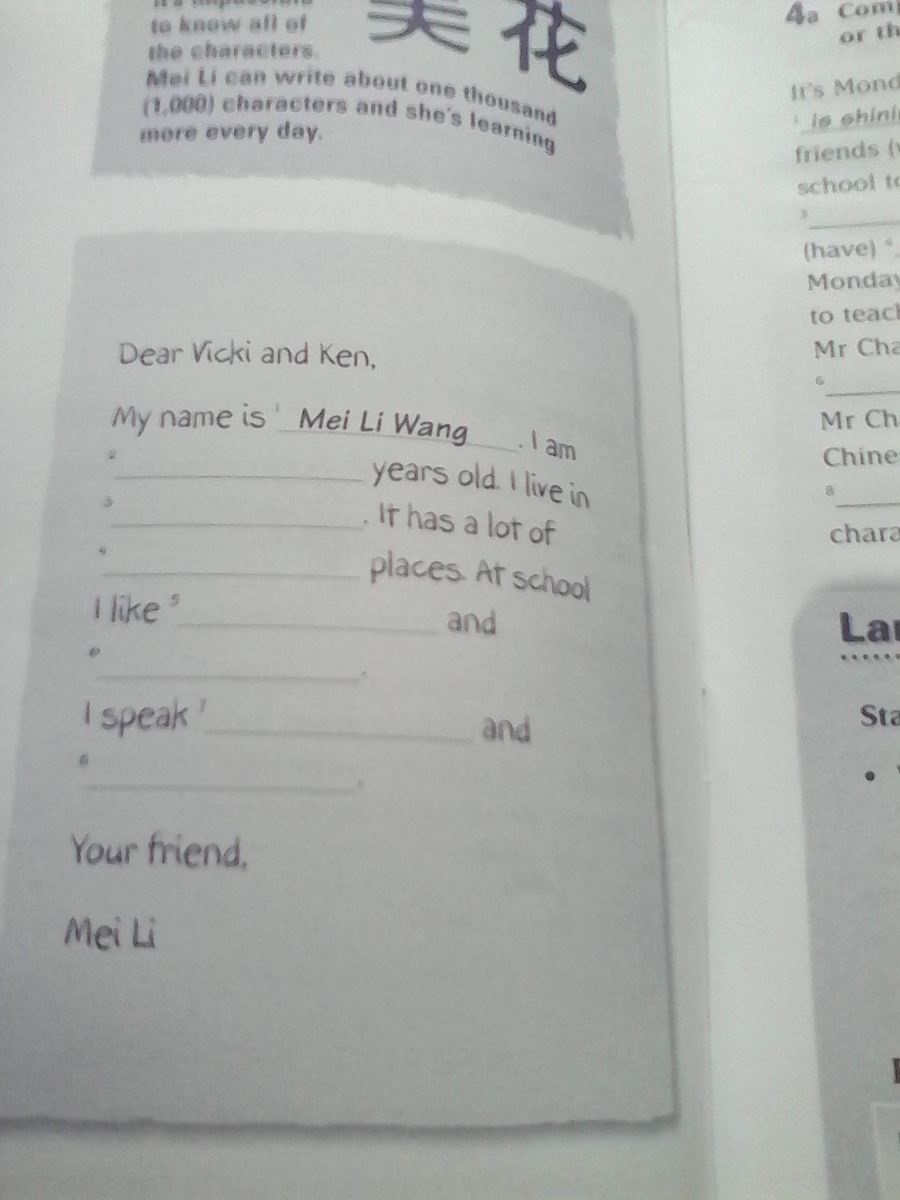 to know all of
the characters.
美 花
Mei Li can write about one thousand
(1,000) characters and she's learning
more every day.
Dear Vicki and Ken,
My name is 1 Mei Li Wang . I am
2 years old. I live in
3 . It has a lot of
4 places. At school
I like 5 and
6 .
I speak 7 and
8 .
Your friend,
Mei Li
4a
or th
It's Mond
is shini
friends (
school to
3
(have) 4
Monday
to teach
Mr Cha
6
Mr Ch
Chine
8
chara
Lan
Sta